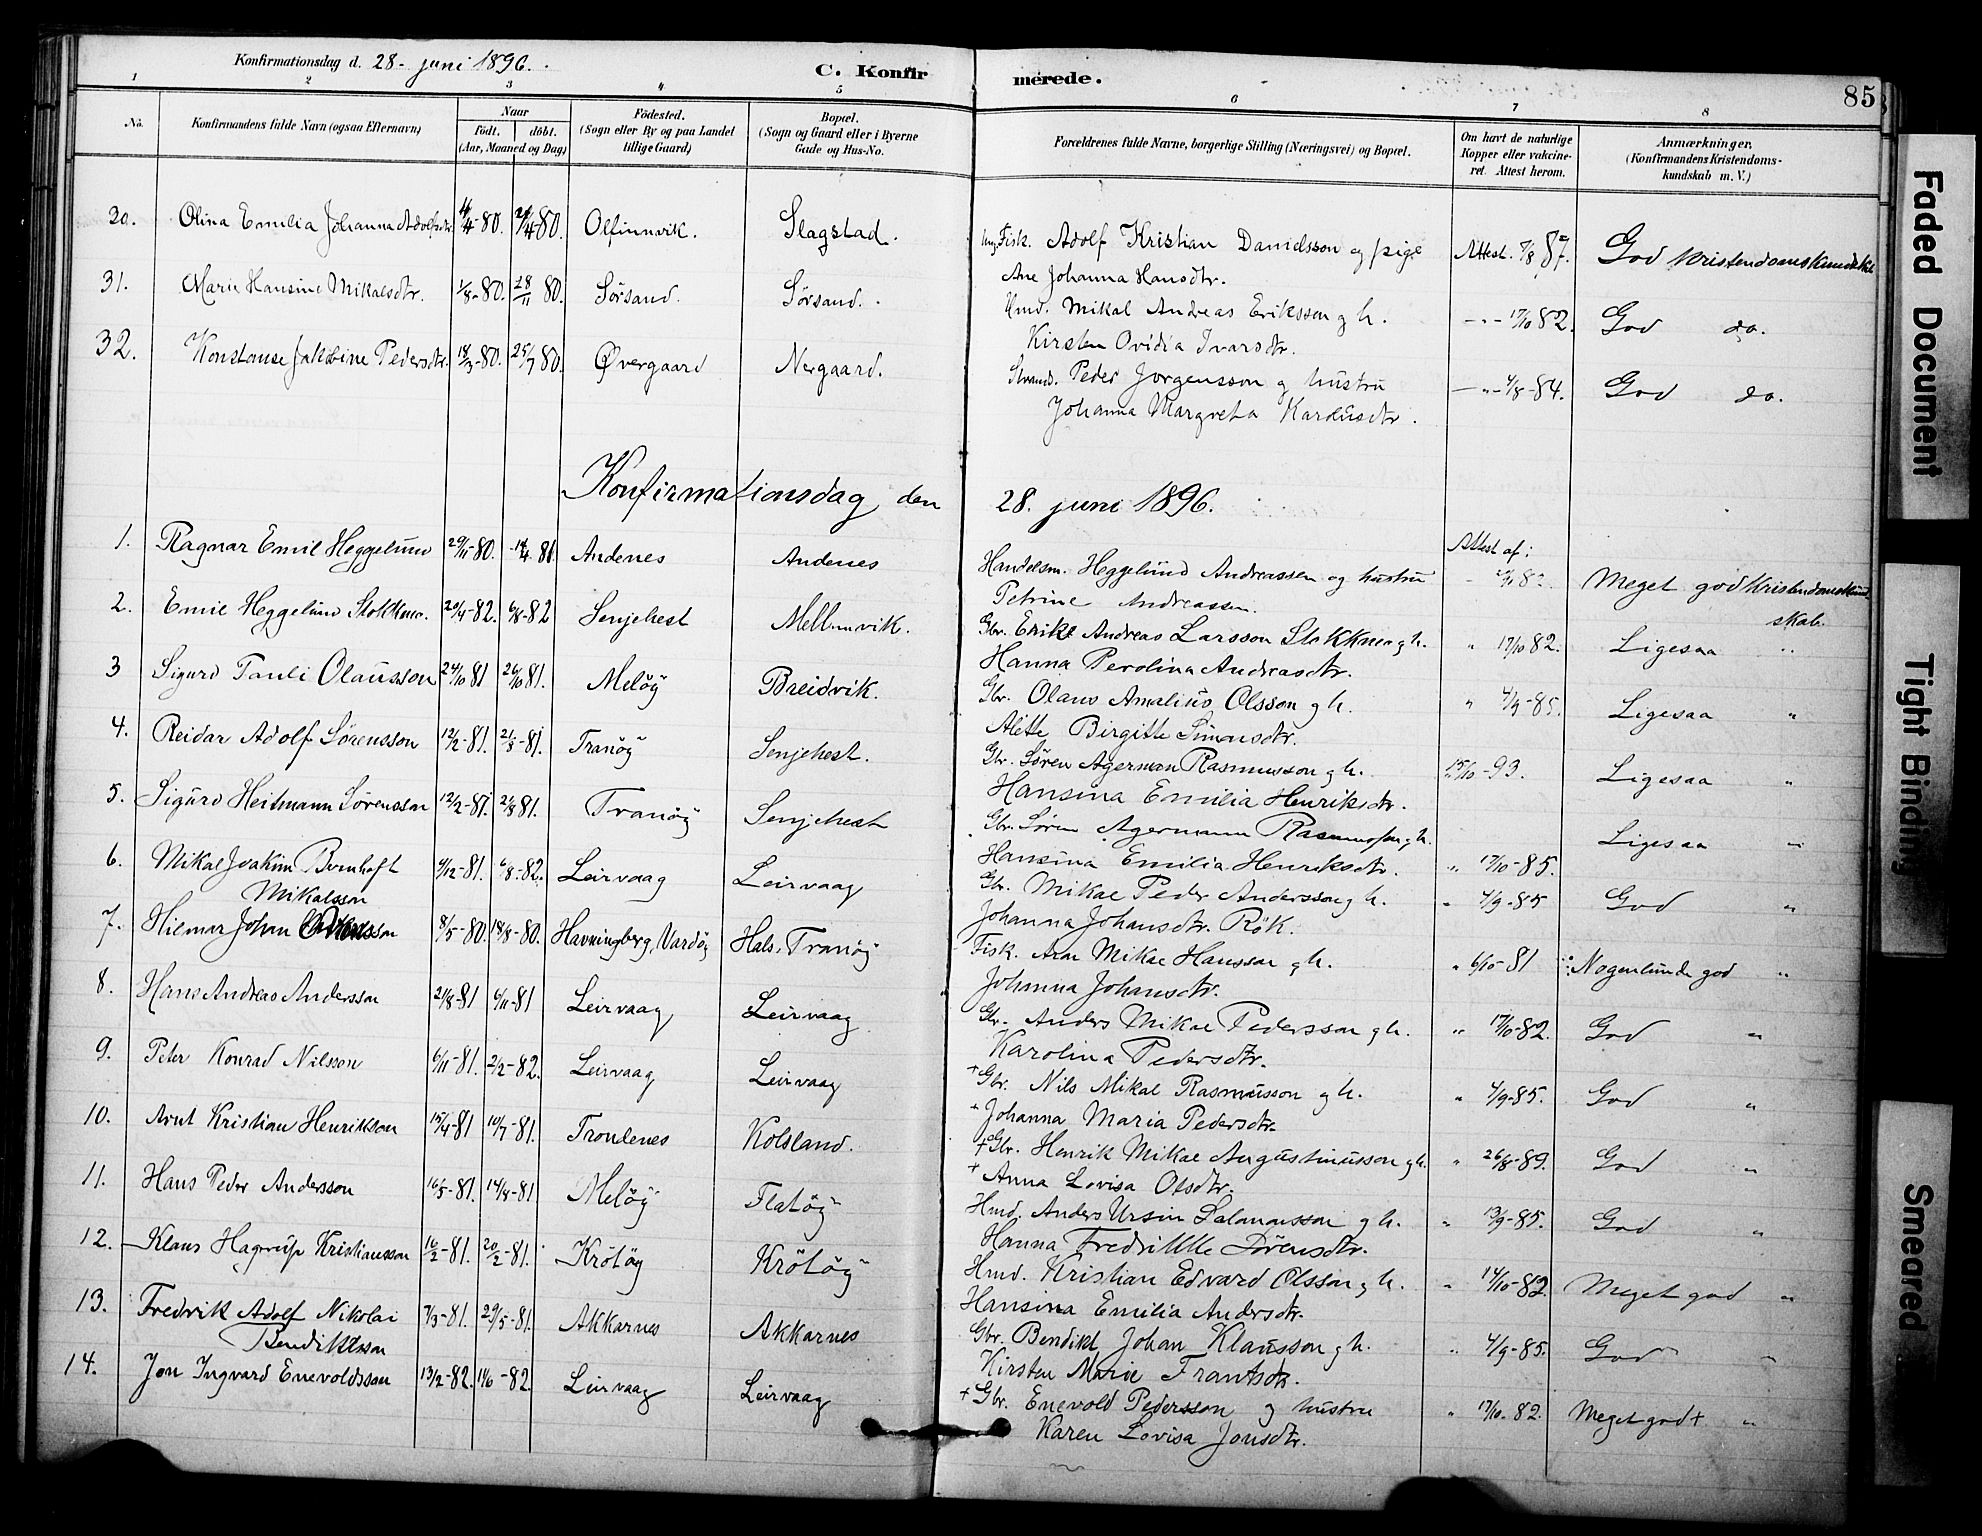 Konfirmationsdag d. 28- juni 1896.
C. Konfirmerede.
85
1 2 3 4 5 6 7 8
No. Konfirmandens fulde Navn (ogsaa Efternavn) Naar födt. döbt. (Aar, Maaned og Dag) Födested. (Sogn eller By og paa Landet tillige Gaard) Bopæl. (Sogn og Gaard eller i Byerne Gade og Hus-No. Forældrenes fulde Navne, borgerlige Stilling (Næringsvei) og Bopæl. Om havt de naturlige Kopper eller vakcineret. Attest herom. Anmærkninger, (Konfirmandens Kristendomskundskab m. V.)
Olina Emilia Johanna Adolfsdtr. 4-80. 4-80. Olfinnvik. Slagstad. Ung. Fisk. Adolf Kristian Danielsson og pige Attest. 7/8 87. God Kristendomskundskab
Ane Johanna Hansdtr.
31. Marie Hansine Mikalsdtr. 1/8-80. 28/11 80. Sörsand. Sörsand. Hmd. Mikal Andreas Eriksson g h. -"- 17/10 82. God do.
Kirsten Ovidia Ivarsdtr.
32. Konstanse Jakobine Pedersdtr. 18/3-80. 25/7 80. Øvergaard Nergaard. Strand. Peder Jörgensson g hustru -"- 4/8-84. God do.
Johanna Margreta Kardusdtr.
Konfirmationsdag den 28. juni 1896.
Attest af:
1. Ragnar Emil Heggelund 29/11-80. 4 81. Andenes Andenes Handelsm. Heggelund Andreassen og hustru 82. Meget god Kristendomskundskab.
Petrine Andreassen.
2. Emil Heggelund Stokkmo. 20/4-82. 6/8-82 Senjehest Mellemvik. Gbr. Andreas Larsson Stokkmo g h. " 17/10 82. Ligesaa "
Hanna Perolina Andreasdtr.
3 Sigurd Pauli Olausson 24/10 81 26/10 81. Melöy Breidvik. Gbr. Olaus Amalius Olsson g h. " 4/9-85. Ligesaa "
Alette Birgitte Simonsdtr.
4. Reidar Adolf Sörensson 12/2-81. 21/8-81. Tranöy Senjehest. Gbr. Sören Agerman Rasmusson g h. 15/10-93. Ligesaa "
Hansina Emilia Henriksdtr.
5. Sigurd Heitmann Sörensson 12/2-81. 21/8 81. Tranöy Senjehest Gbr. Sören Agermann Rasmusson g h. Ligesaa "
Hansina Emilia Henriksdtr. " 17/10-85.
6. Mikal Joakim Bernhoft Mikalsson 4/12-81. 6/8-82. Leirvaag Leirvaag Gbr. Mikal Peder Andersson g h. " 4/9-85 God "
Johanna Johansdtr. Rök.
7. Hilmar Johan 8/5-80. 18/8-80. Havningberg, Vardöy Hals, Tranöy Fisk. Aron Mikal Hansson g h. " 6/10-81 Nogenlunde god "
Johanna Johansdtr.
8. Hans Andreas Andersson 21/8-81 6/11-81 Leirvaag, Leirvaag. Gbr. Anders Mikal Pedersson g h. " 17/10-82. God "
Karolina Pedersdtr.
9. Peter Konrad Nilsson 6/11-81. 2/2-82. Leirvaag Leirvaag +Gbr. Nils Mikal Rasmusson g h. " 4/9-85. God "
Johanna Maria Pedersdtr.
10. Arnt Kristian Henriksson 15/4-81 10/7-81. Trondenes Kolsland. +Gbr. Henrik Mikal Augustinusson g h. " 26/8-89. God "
+ Anna Lovisa Olsdtr.
11. Hans Peder Andersson 16/5-81. 14/8-81 Melöy Flatöy Hmd. Anders Ursin Salomonsson g h. " 13/9-85. God "
Hanna Fredrikke Sörensdtr.
12. Klaus Hagerup Kristiansson 16/2-81. 20/2-81. Krötöy Krötöy Hmd. Kristian Edvard Olsson g h. " 14/10-82 Meget god "
Hansina Emilia Andersdtr.
13. Fredrik Adolf Nikolai Bendiktsson 7/3-81. 29/5-81. Akkarnes Akkarnes Gbr. Bendikt Johan Klausson g h. " 4/9-85. God "
Kirsten Marie Frantsdtr.
14. Jon Ingvard Enevoldsson 13/2-82. 11/6-82. Leirvaag Leirvaag +Gbr. Enevold Pedersson g hustru " 17/10-82. Meget god+ "
Karen Lovisa Jonsdtr.
Faded Document
Tight Binding
Smeared